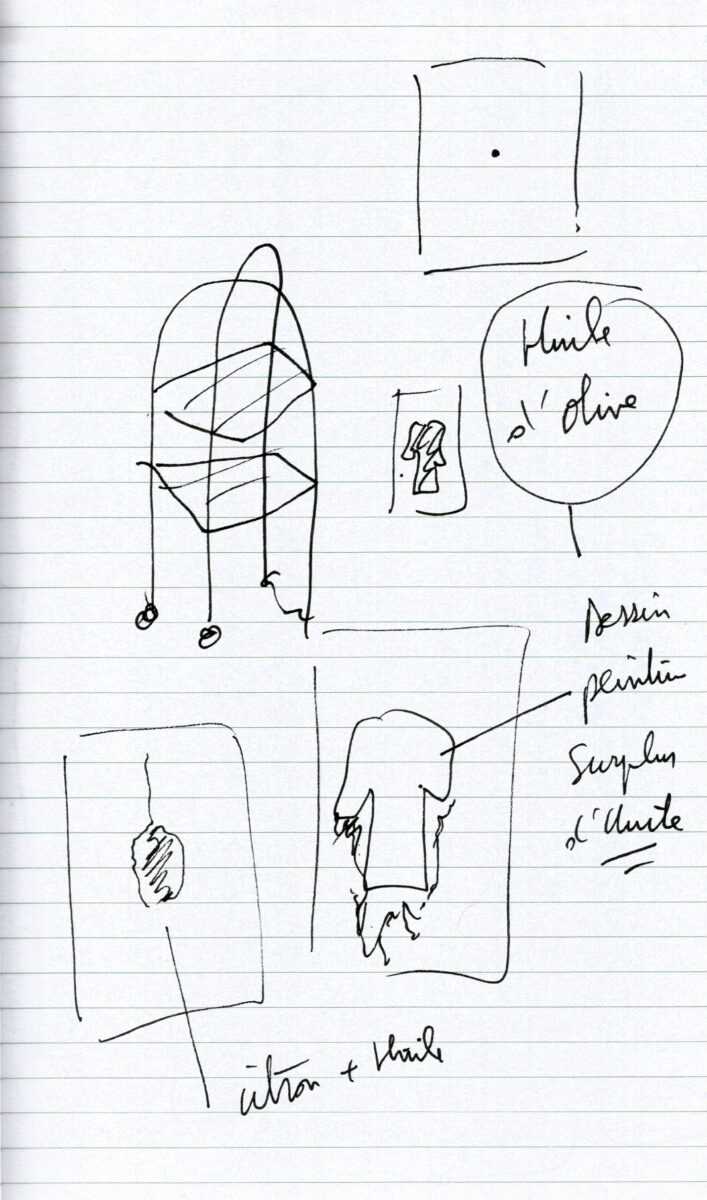 Huile
d'olive
Dessin
peinture
Surplus
d'Huile
citron + Huile